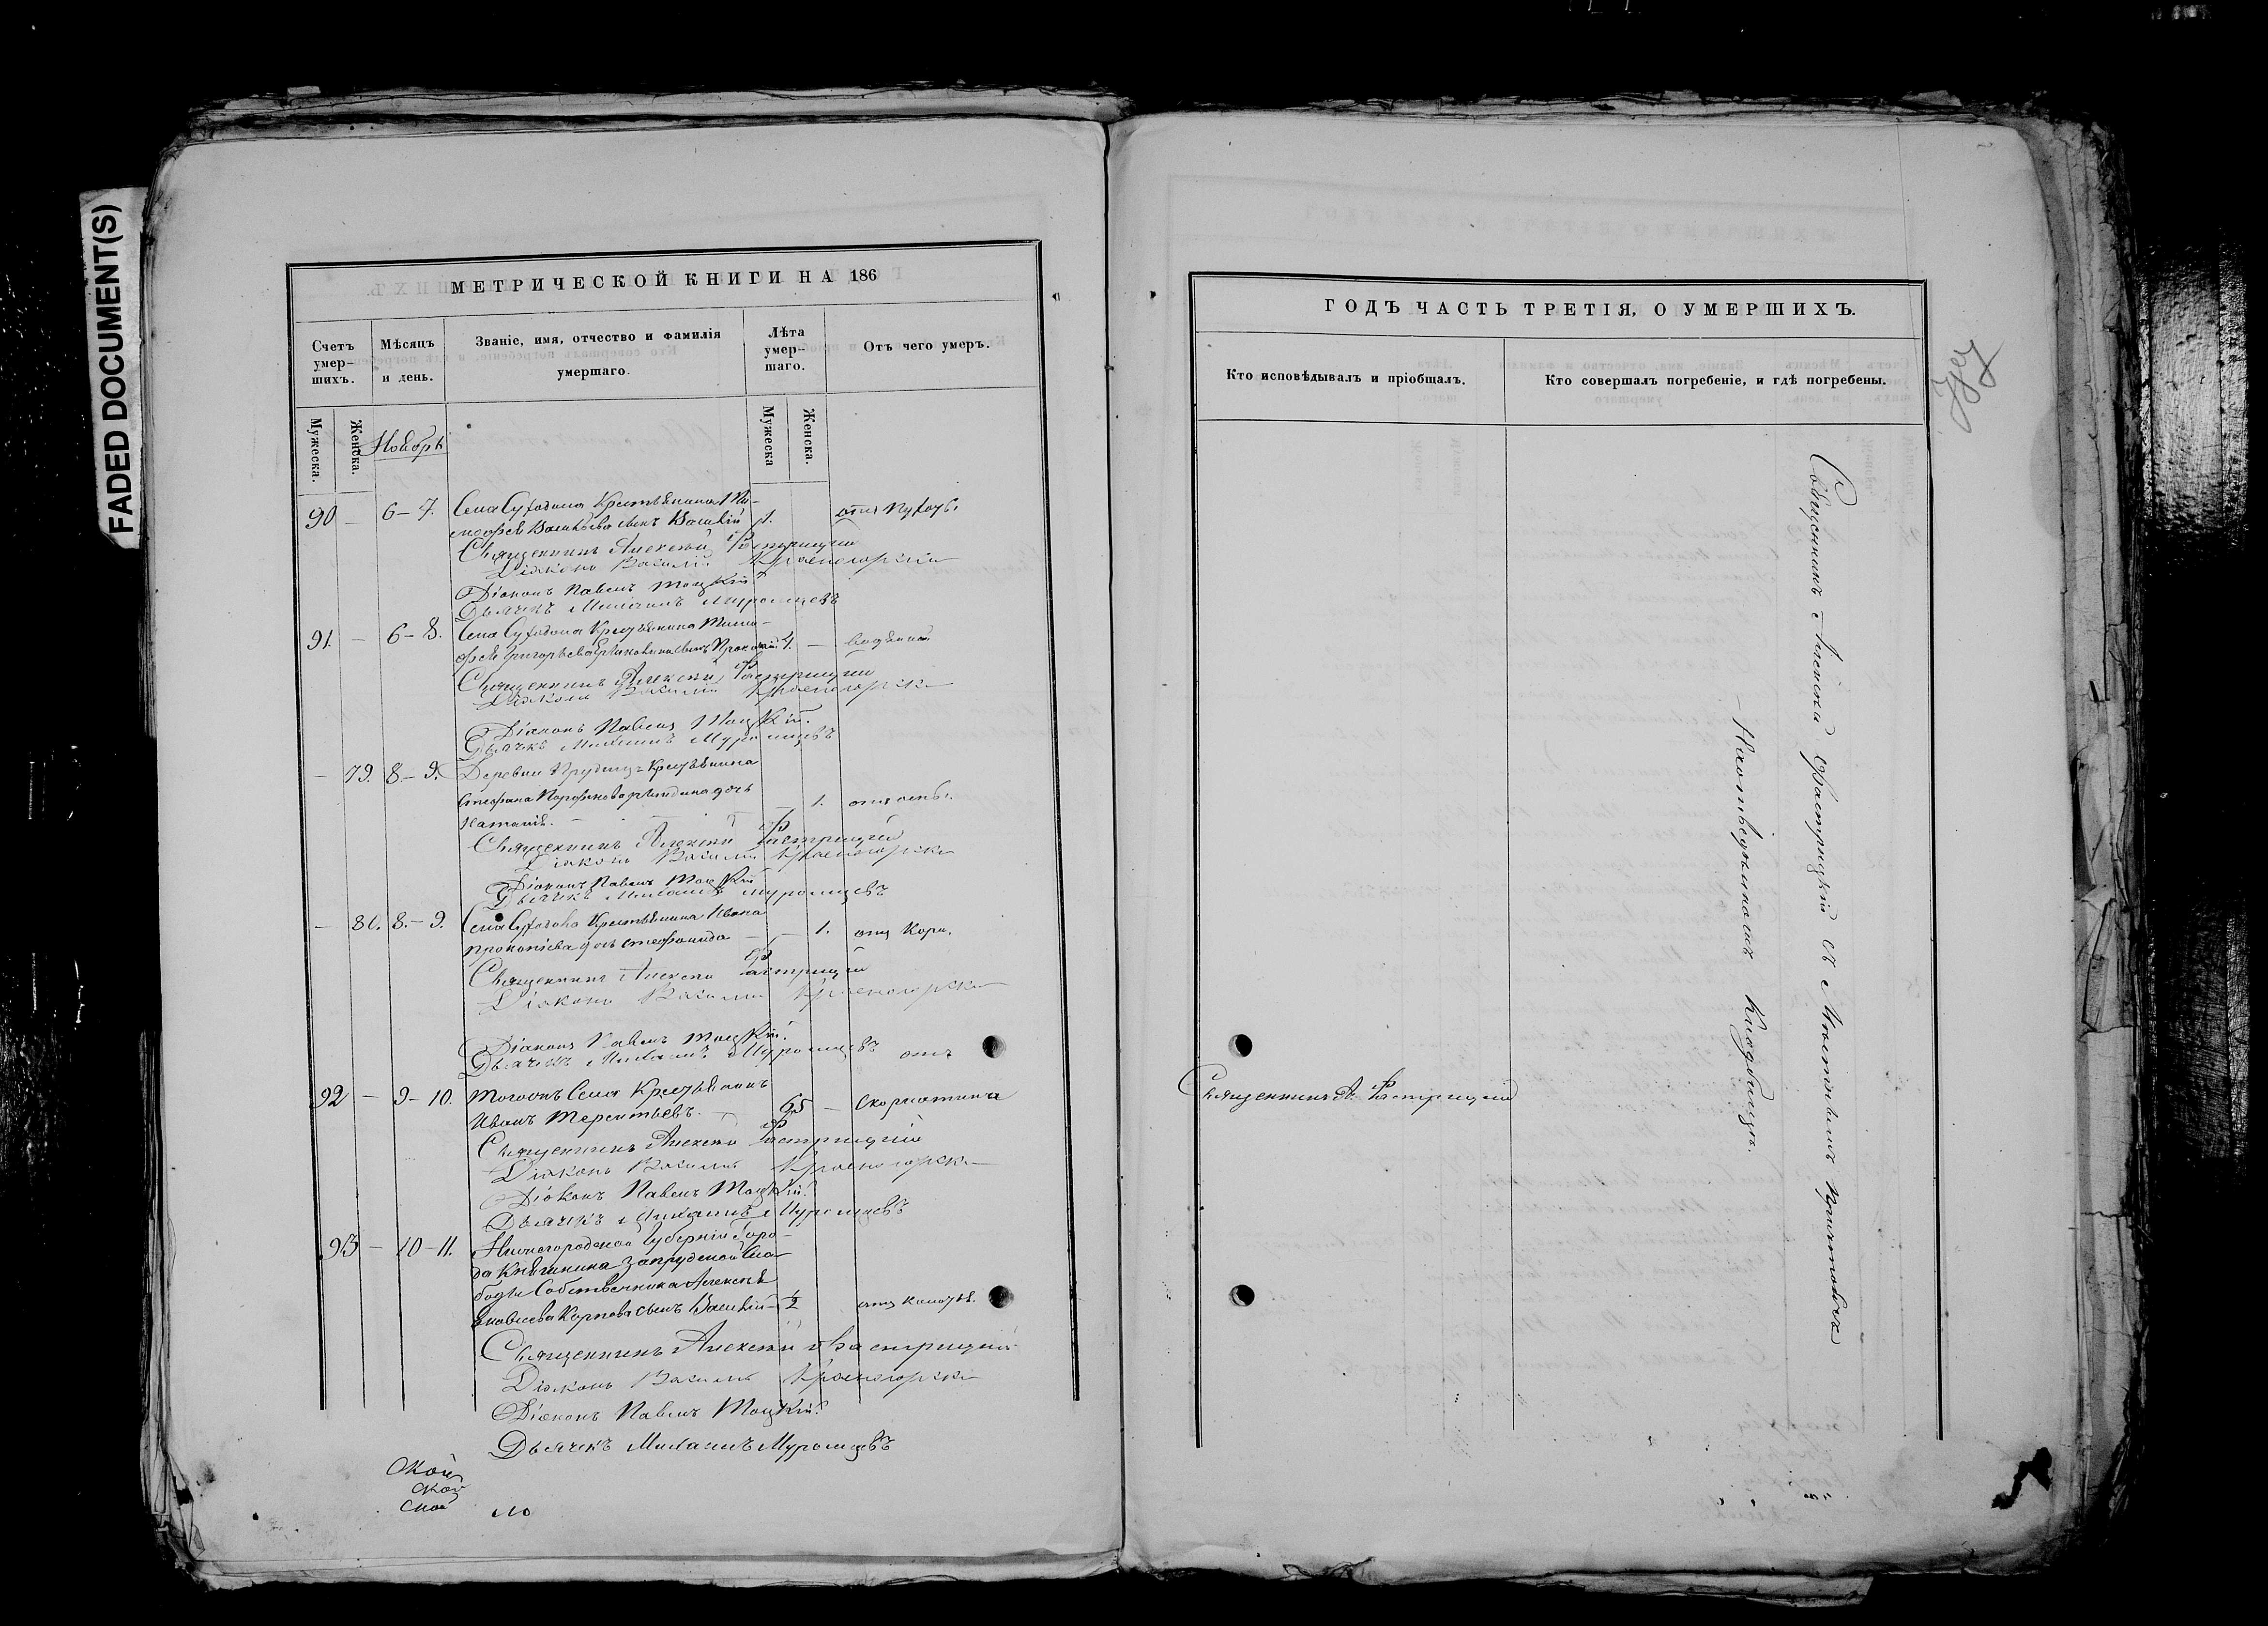 FADED DOCUMENT(S)
МЕТРИЧЕСКОЙ КНИГИ НА 186
Счетъ умер-шихъ.
Мѣсяцъ и день.
Званіе, имя, отчество и фамилія умершаго.
Лѣта умер-шаго.
Отъ чего умеръ.
Мужеска.
Женска.
Ноябрь
Мужеска
Женска.
90 — 6–7. Села Суходола Крестьянина
Васильева сынъ Василій 1.
Священникъ Алексѣй Растрицкій
Діаконъ Василій Красногорскій
Діаконъ Павелъ Тоцкій.
Дьячекъ Михаилъ Муромцевъ
91. — 6–8. Села Суходола Крестьянина Тимо-
фея Григорьева сынъ Прокопій 4. —
Священникъ Алексѣй Растрицкій
Діаконъ Василій Красногорскій
Діаконъ Павелъ Тоцкій.
Дьячекъ Михаилъ Муромцевъ
— 79. 8–9. Деревни Крестьянина
Стефана дочь — 1. отъ оспы.
Наталія.
Священникъ Алексѣй Растрицкій
Діаконъ Василій Красногорскій
Діаконъ Павелъ Тоцкій
Дьячекъ Михаилъ Муромцевъ
— 80. 8–9. Села Суходола Крестьянина Ивана
Прокопіева дочь Стефанида — — 1. отъ Кори.
Священникъ Алексѣй Растрицкій
Діаконъ Василій Красногорскій
Діаконъ Павелъ Тоцкій.
Дьячекъ Михаилъ Муромцевъ
92 — 9–10. Тогожъ Села Крестьянинъ 65 — отъ
Иванъ Терентьевъ.
Священникъ Алексѣй Растрицкій
Діаконъ Василій Красногорскій
Діаконъ Павелъ Тоцкій.
Дьячекъ Михаилъ Муромцевъ
93 — 10–11. Нижегородской Губерніи Горо-
да Княгинина Запрудской Сло-
боды Собственника Алексѣя
Яковлева Карпова сынъ Василій — 1/2
Священникъ Алексѣй Растрицкій
Діаконъ Василій Красногорскій
Діаконъ Павелъ Тоцкій.
Дьячекъ Михаилъ Муромцевъ
ской
ГОДЪ ЧАСТЬ ТРЕТІЯ, О УМЕРШИХЪ.
Кто исповѣдывалъ и пріобщалъ.
Кто совершалъ погребеніе, и гдѣ погребены.
Священникъ А. Растрицкій
Священникъ Алексѣй Растрицкій съ причтомъ
На кладбищѣ.